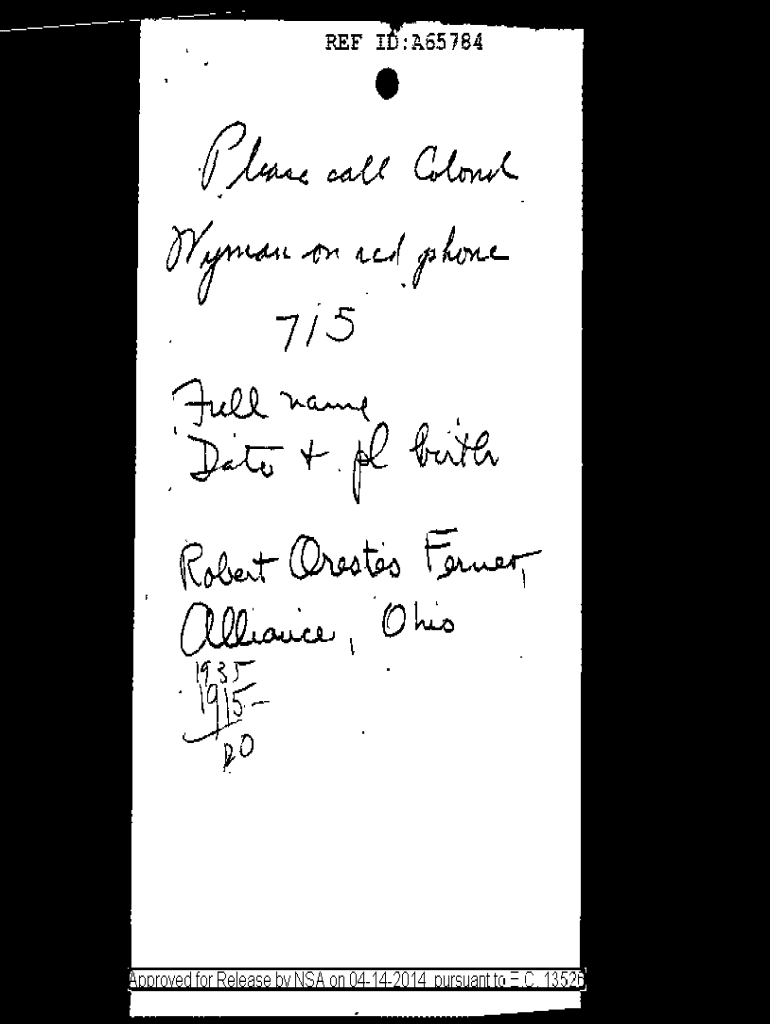 REF ID:A65784
Please call Colonel
Wyman on red phone
715
Full name
Date + pl birth
Robert Orestes Ferner,
Alliance, Ohio
1935
1915
20
Approved for Release by NSA on 04-14-2014 pursuant to E.O. 13526